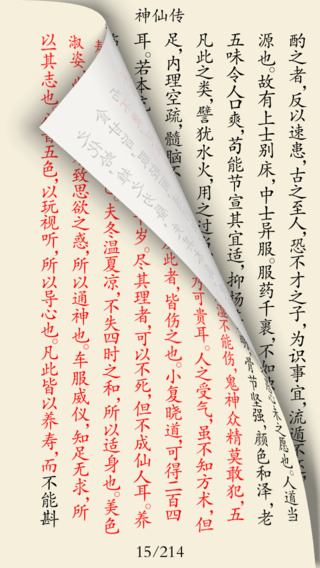 神仙传
酌之者，反以速患，古之至人，恐不才之子，为识事宜，流遁不
源也。故有上士别床，中士异服。服药千裹，不如
五味令人口爽，苟能节宣其宜适，抑扬
凡此之类，譬犹水火，用之过当
足，内理空疏，髓脑不
耳。若本充
之愿也。人道当
骨节坚强，颜色和泽，老
不能伤，鬼神众精莫敢犯，五
乃可贵耳。人之受气，虽不知方术，但
此者，皆伤之也。小复晓道，可得二百四
岁。尽其理者，可以不死，但不成仙人耳。养
也。夫冬温夏凉，不失四时之和，所以适身也。美色
淑姿，致思欲之惑，所以通神也。车服威仪，知足无求，所
以一其志也。音五色，以玩视听，所以导心也。凡此皆以养寿，而不能斟
15/214